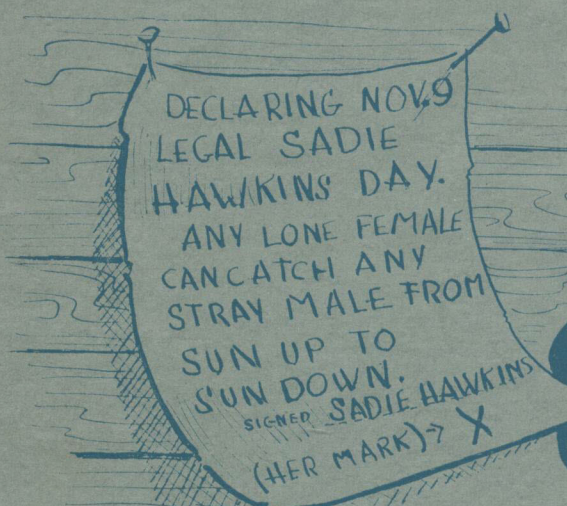 DECLARING NOV.9
LEGAL SADIE
HAWKINS DAY.
ANY LONE FEMALE
CAN CATCH ANY
STRAY MALE FROM
SUN UP TO
SUN DOWN.
SIGNED SADIE HAWKINS
(HER MARK)→ X